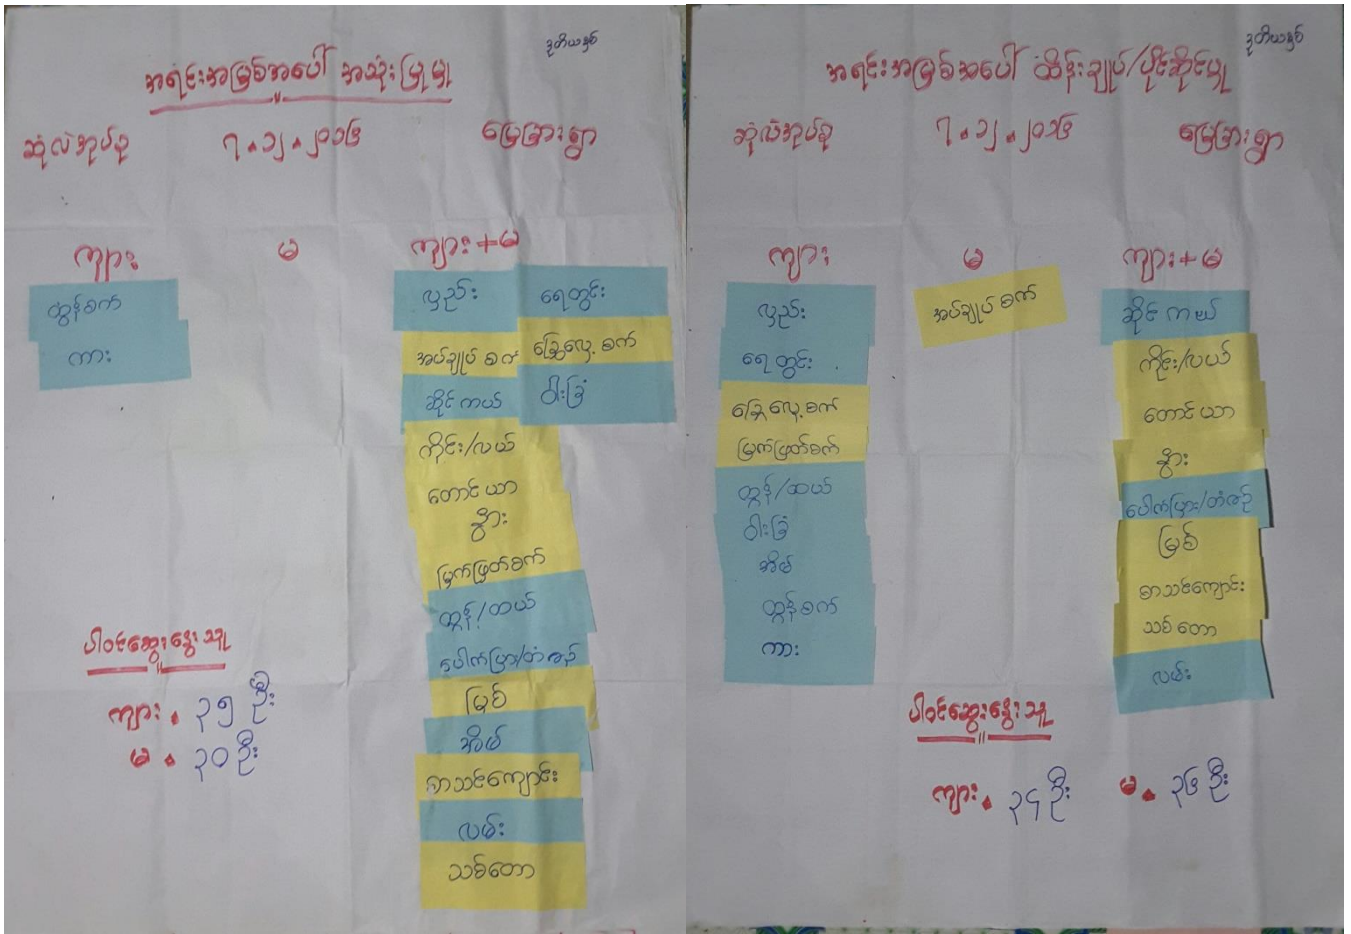 ဒုတိယနှစ်
အရင်းအမြစ်အပေါ် အသုံးပြုမှု
ဆုံလဲအုပ်စု ၇.၁၂.၂၀၁၆ မြေခြားရွာ
ကျား မ ကျား+မ
ထွန်စက်
ကား
လှည်း
အပ်ချုပ် စက်
ဆိုင်ကယ်
ကိုင်း/လယ်
တောင်ယာ
နွား
မြက်ဖြတ်စက်
ထွန်/ထယ်
ပေါက်ပြား/တံစဉ်
မြစ်
အိမ်
စာသင်ကျောင်း
လမ်း
သစ်တော
ရေတွင်း
ခြွေလှေ့ စက်
ဝါးခြံ
ပါဝင်ဆွေးနွေးသူ
ကျား. ၃၅ ဦး
မ. ၃၀ ဦး
ဒုတိယနှစ်
အရင်းအမြစ်အပေါ် ထိန်းချုပ်/ပိုင်ဆိုင်မှု
ဆုံလဲအုပ်စု ၇.၁၂.၂၀၁၆ မြေခြားရွာ
ကျား မ ကျား+မ
လှည်း
ရေတွင်း
ခြွေလှေ့စက်
မြက်ဖြတ်စက်
ထွန်/ထယ်
ဝါးခြံ
အိမ်
ထွန်စက်
ကား
အပ်ချုပ် စက်
ဆိုင်ကယ်
ကိုင်း/လယ်
တောင်ယာ
နွား
ပေါက်ပြား/တံစဉ်
မြစ်
စာသင်ကျောင်း
သစ်တော
လမ်း
ပါဝင်ဆွေးနွေးသူ
ကျား. ၃၄ ဦး မ. ၃၆ ဦး